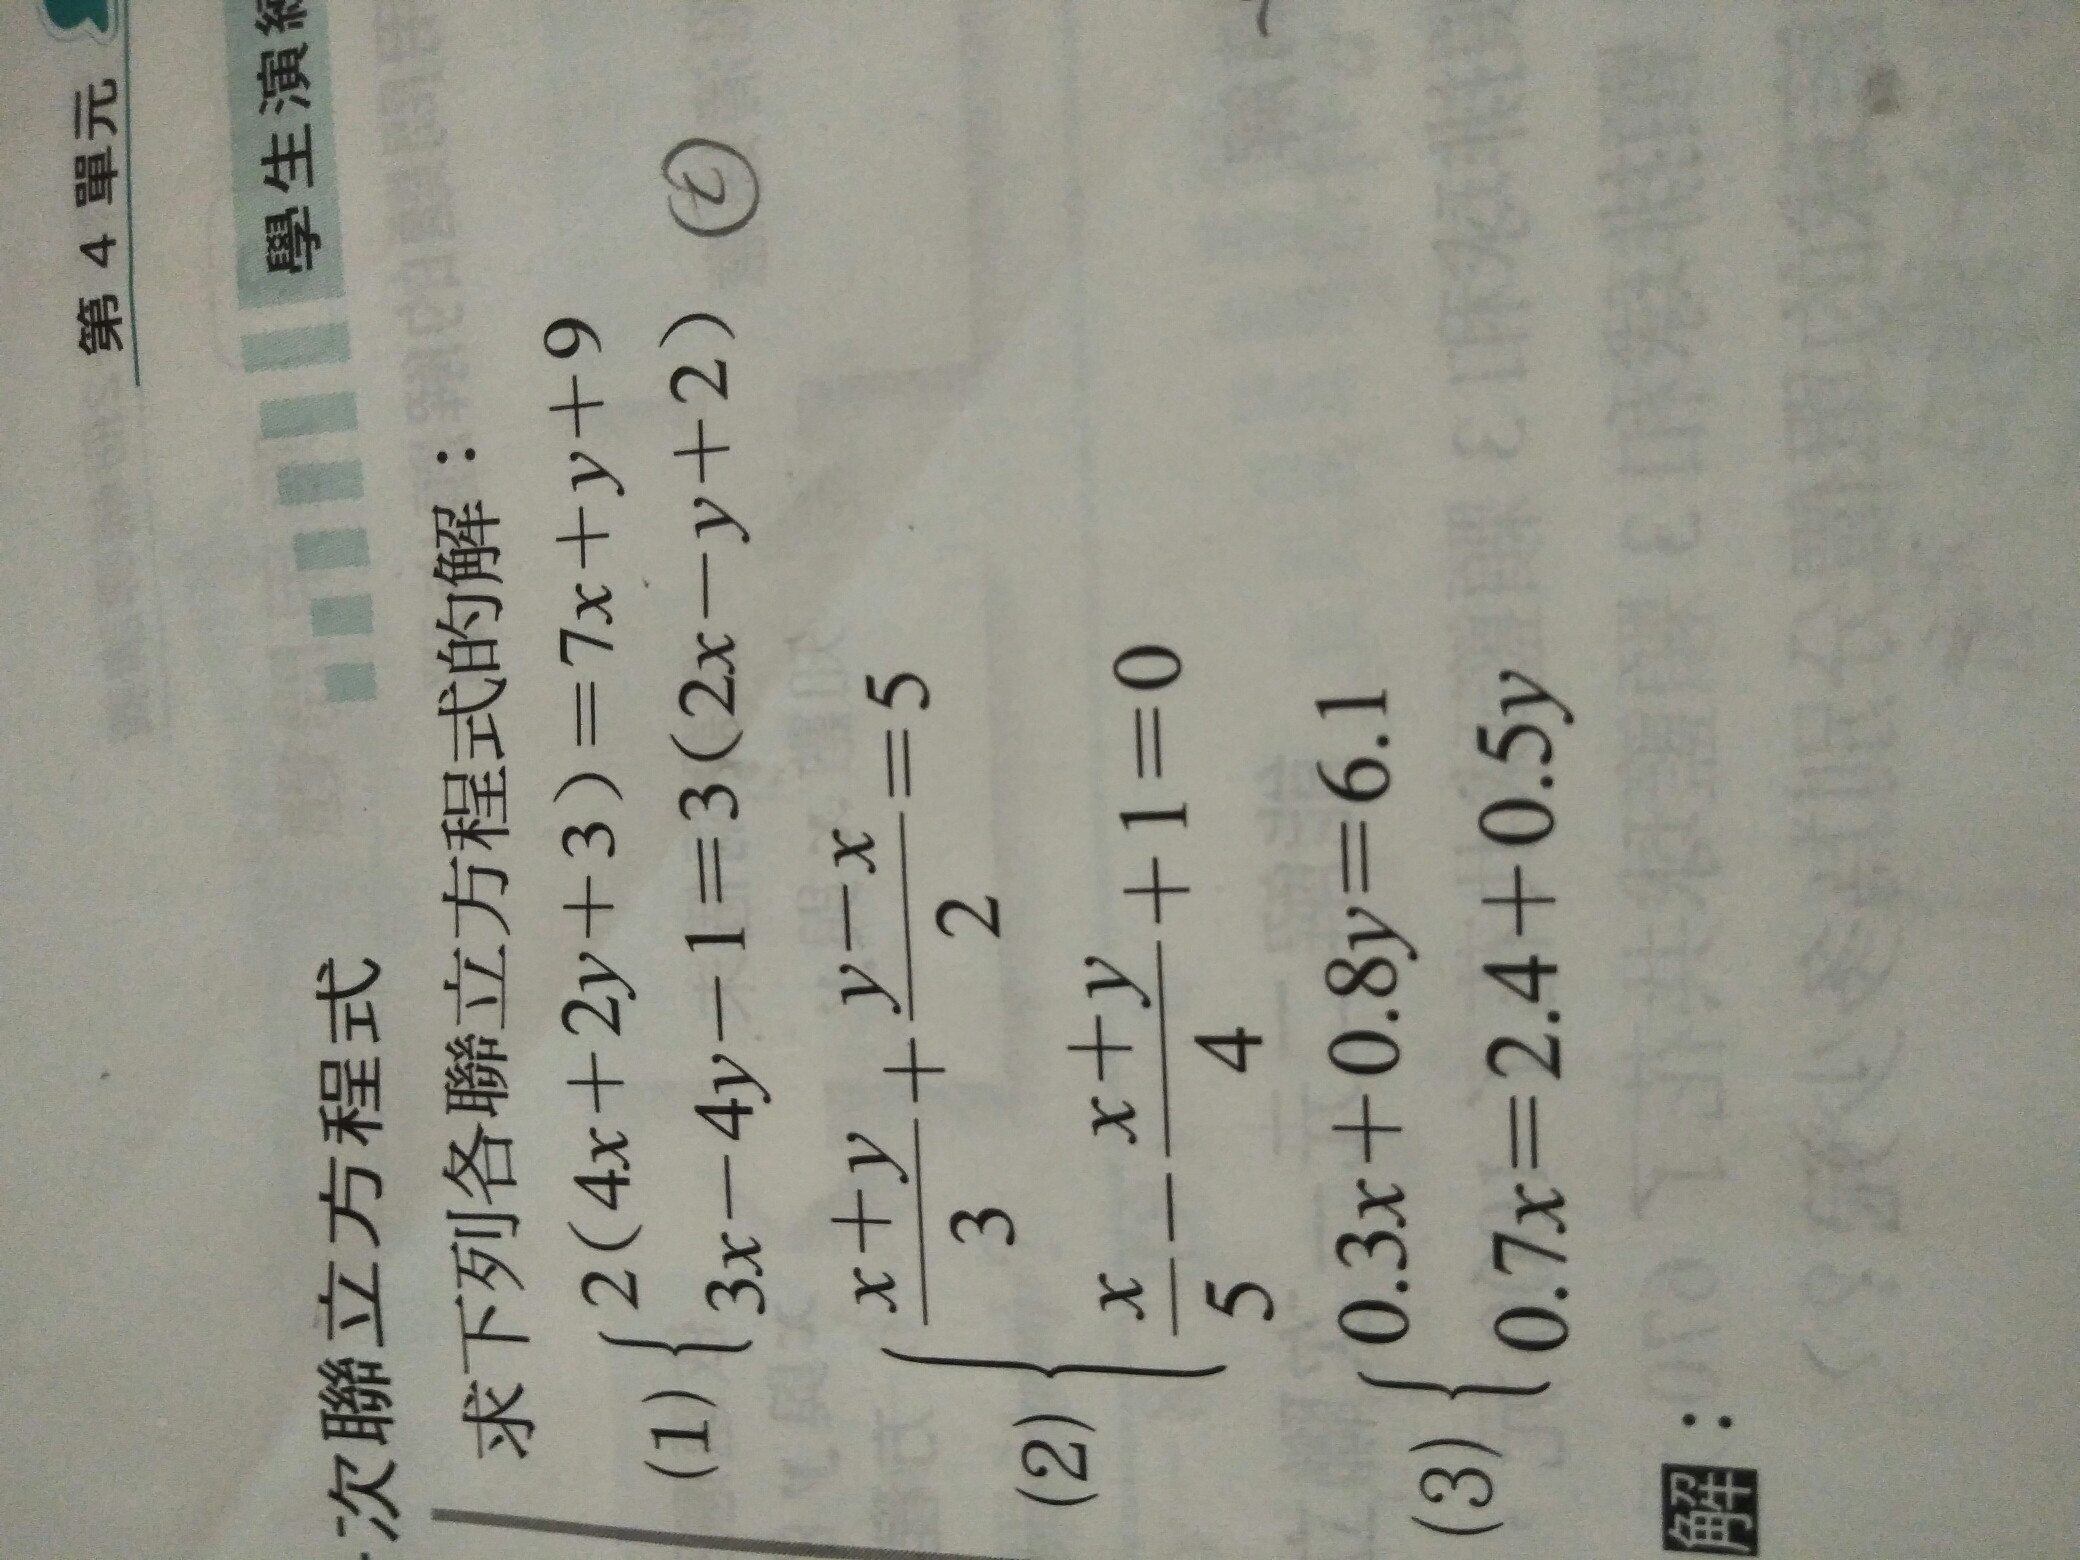 第 4 單元
學生演
次聯立方程式
求下列各聯立方程式的解：
(1) { 2(4x+2y+3)=7x+y+9
3x-4y-1=3(2x-y+2)
(2) { \frac{x+y}{3}+\frac{y-x}{2}=5
\frac{x}{5}-\frac{x+y}{4}+1=0
(3) { 0.3x+0.8y=6.1
0.7x=2.4+0.5y
解：